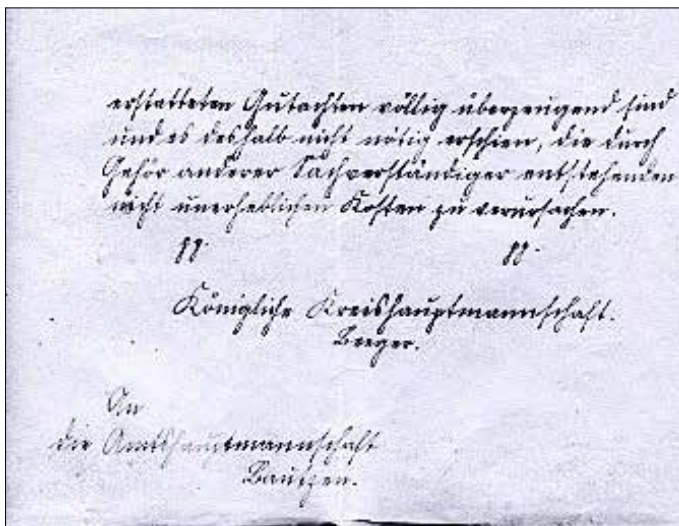 erstatteten Gutachten völlig überzeugend sind
und es deshalb nicht nötig erschien, die durch
Gehör anderer Sachverständiger entstehenden
nicht unerheblichen Kosten zu verursachen.
Königliche Kreishauptmannschaft.
An
die Amtshauptmannschaft
Bautzen.